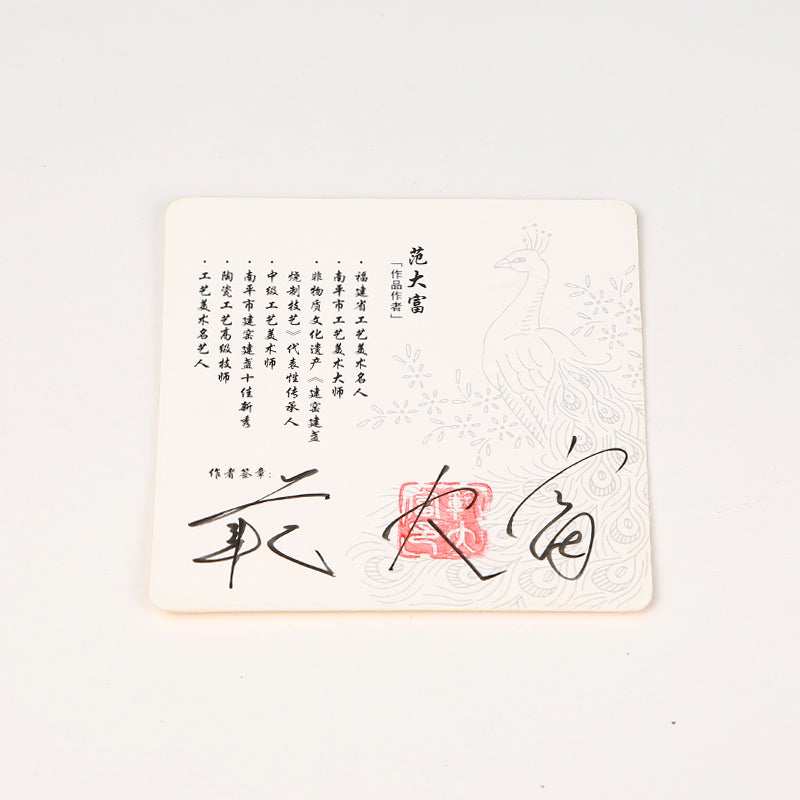 范大富
「作品作者」
·福建省工艺美术名人
·南平市工艺美术大师
·非物质文化遗产《建窑建盏
烧制技艺》代表性传承人
·中级工艺美术师
·南平市建窑建盏十佳新秀
·陶瓷工艺高级技师
·工艺美术名艺人
作者签章:
范大富